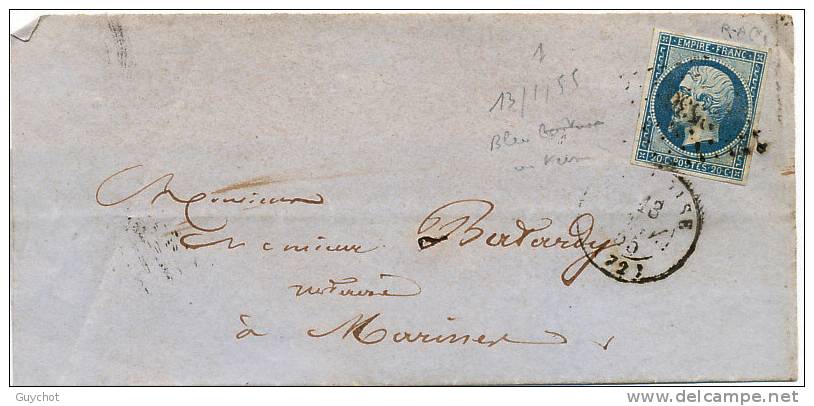 R-A
EMPIRE · FRANC.
20 C · POSTES · 20 C
1
13/1/55
Bleu
ISE
(72)
Monsieur
Monsieur Batardy
notaire
à Marines
Guychot
delcampe.net